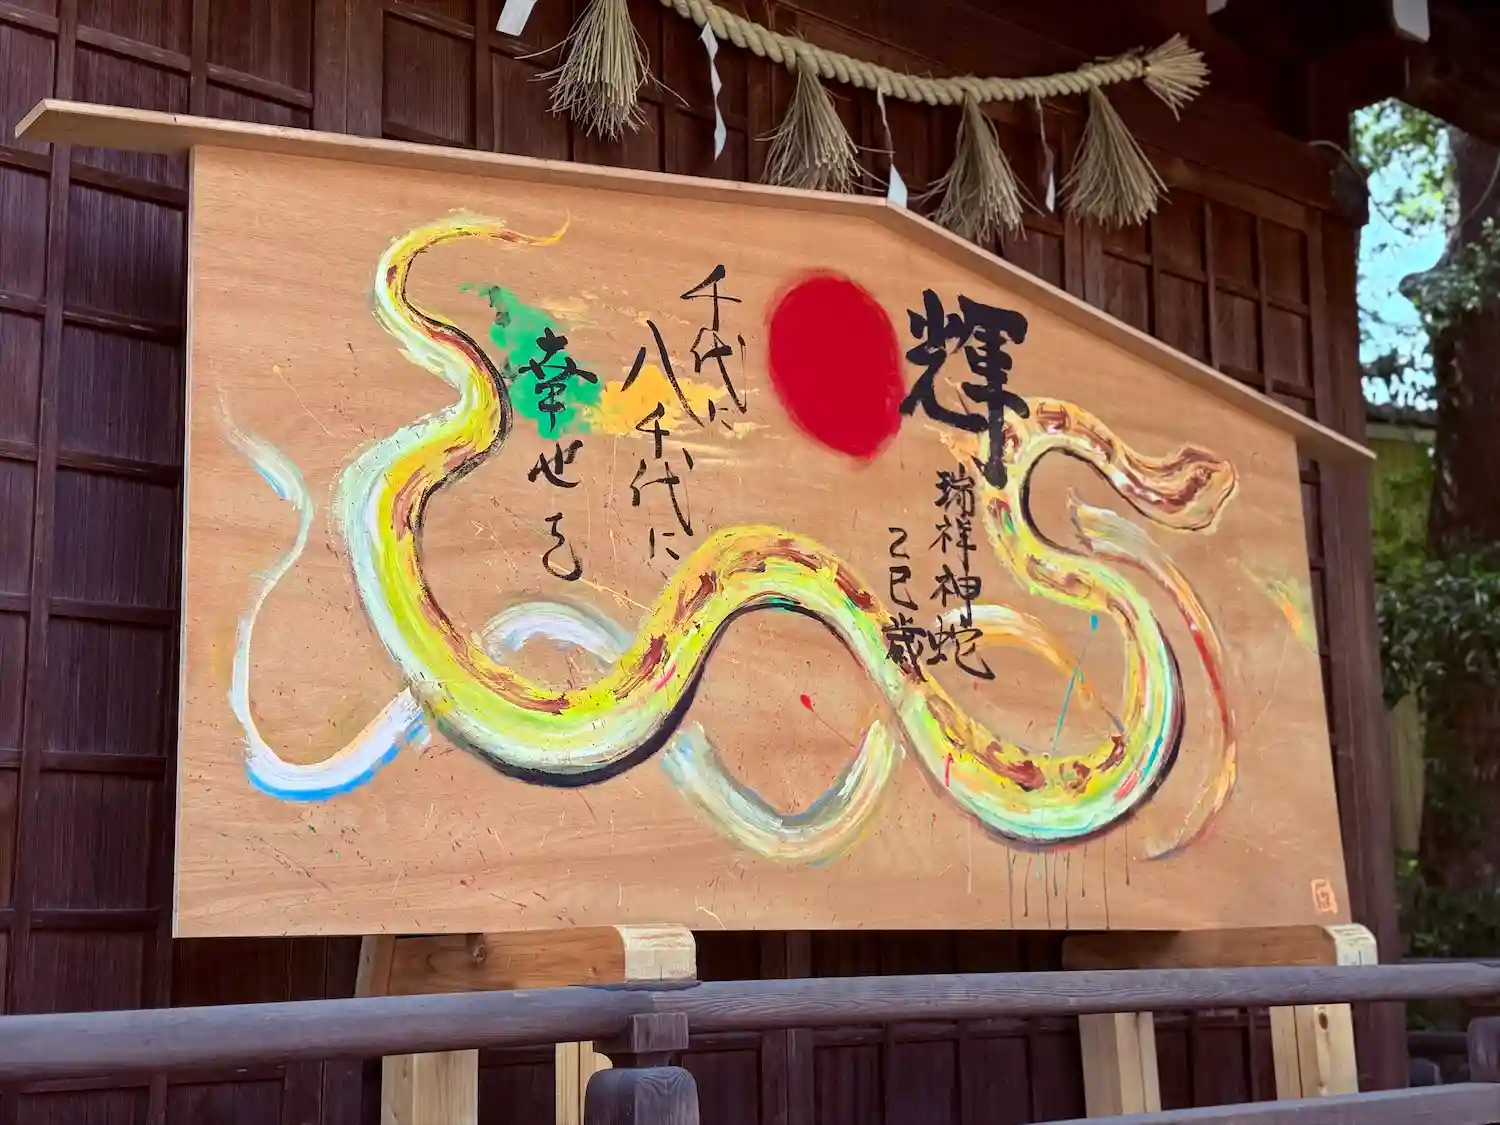 輝
瑞祥神蛇
乙巳歳
千代に
八千代に
幸せを